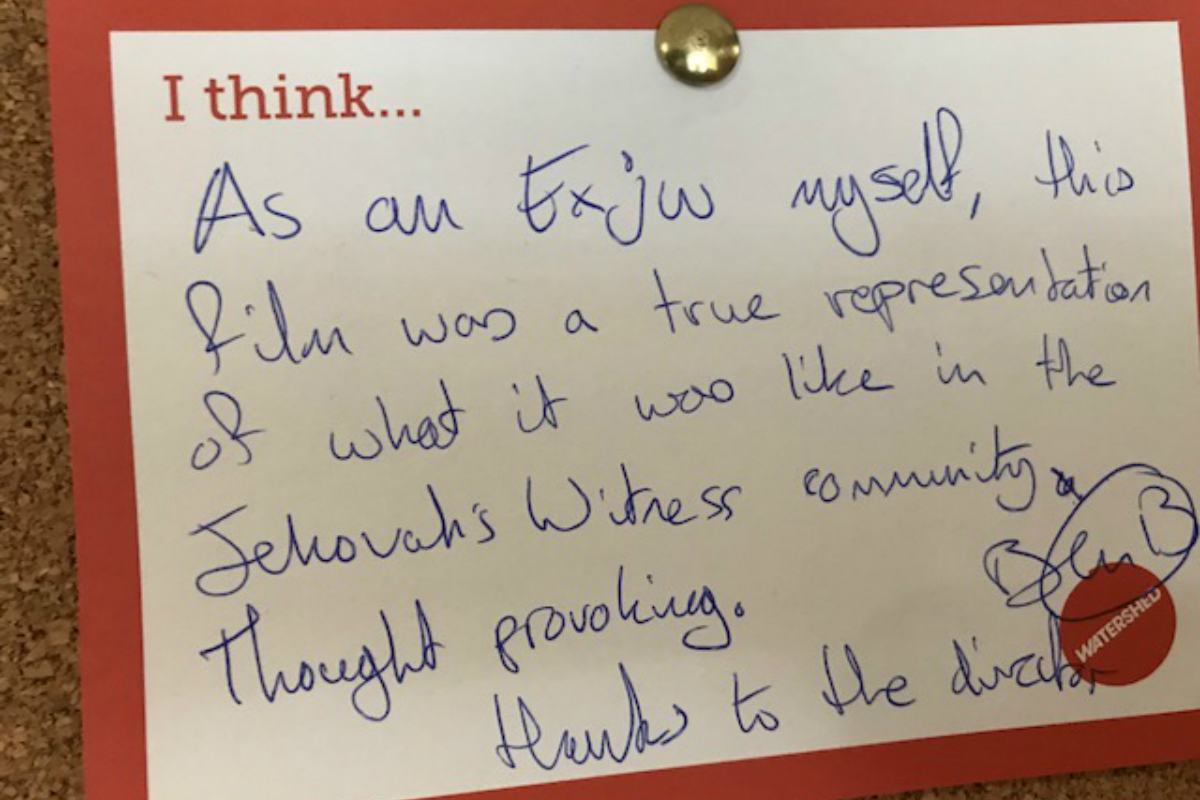 I think...
As an Ex jw myself, this
film was a true representation
of what it was like in the
Jehovah's Witness community.
Ben B
Thought provoking.
WATERSHED
thanks to the director